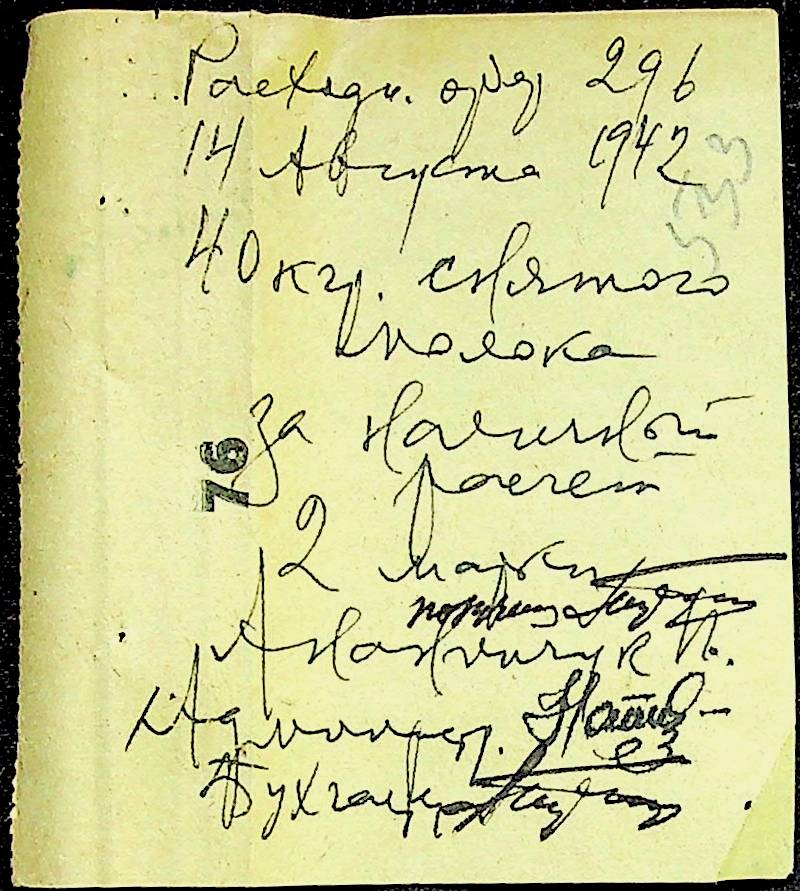 Расходн. орд. 296
14 Августа 1942
533
40 кгр. снятого
молока
за наличный
расчет
76
2 марки
Ананичук П.
Администр.
Бухгалт.